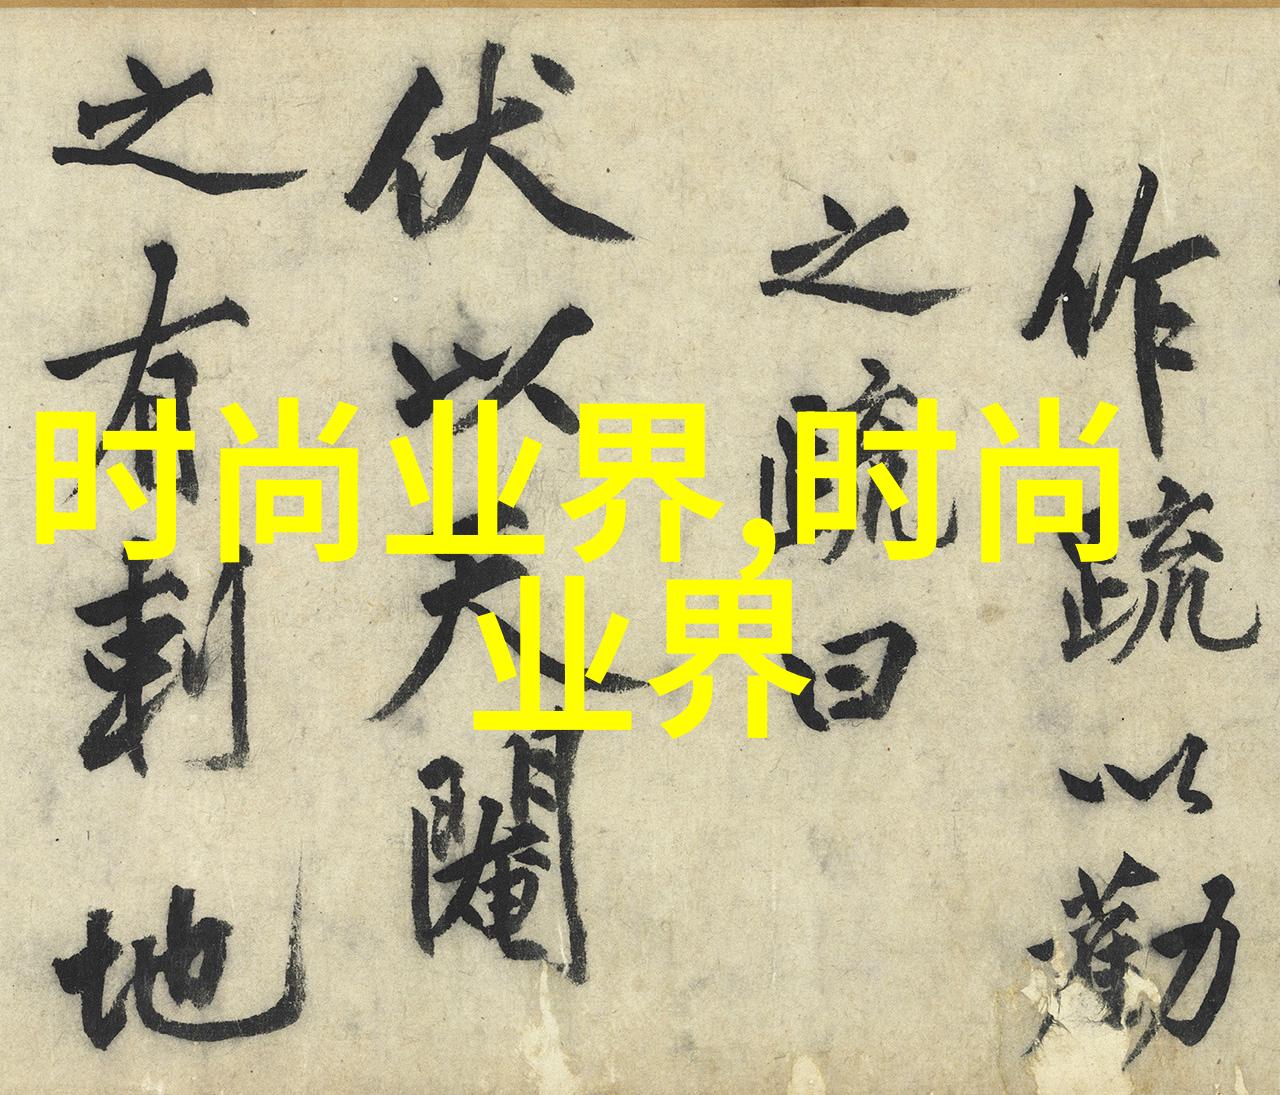 作疏以勸
之疏曰
伏以天
之有地
时尚业界,时尚
业界